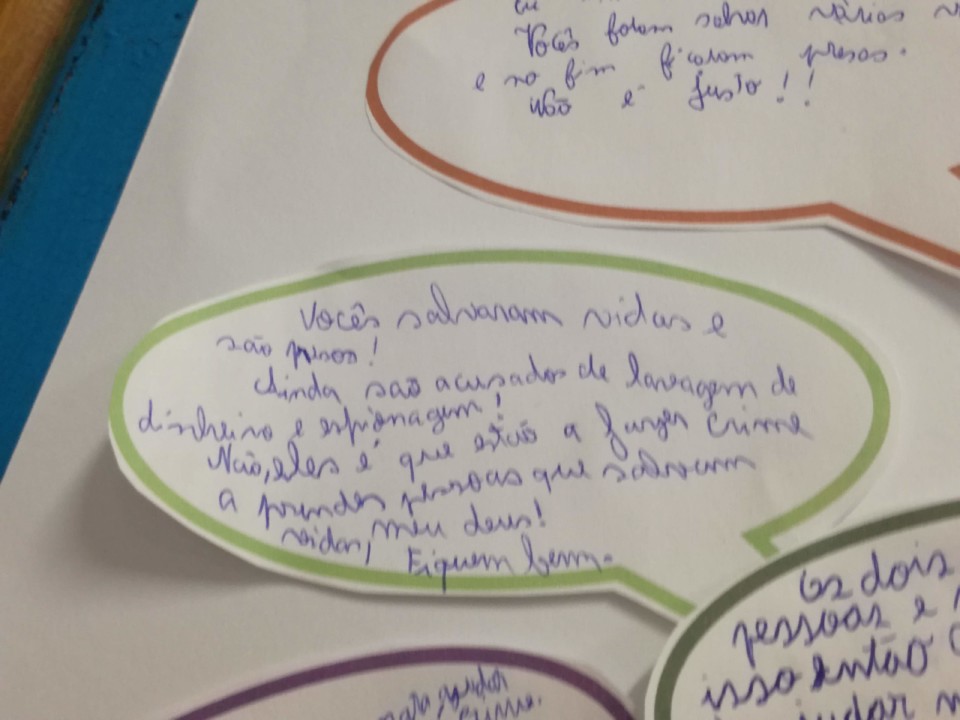 Vocês foram salvar várias
e no fim ficaram presos.
Não é justo!!
Vocês salvaram vidas e
são presos!
Ainda são acusados de lavagem de
dinheiro e espionagem!
Não, eles é que estão a fazer crime
a prender pessoas que salvaram
vidas, meu deus!
Fiquem bem.
Os dois
pessoas e
isso então
ajudar